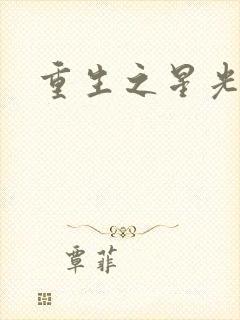 重生之星光
覃菲